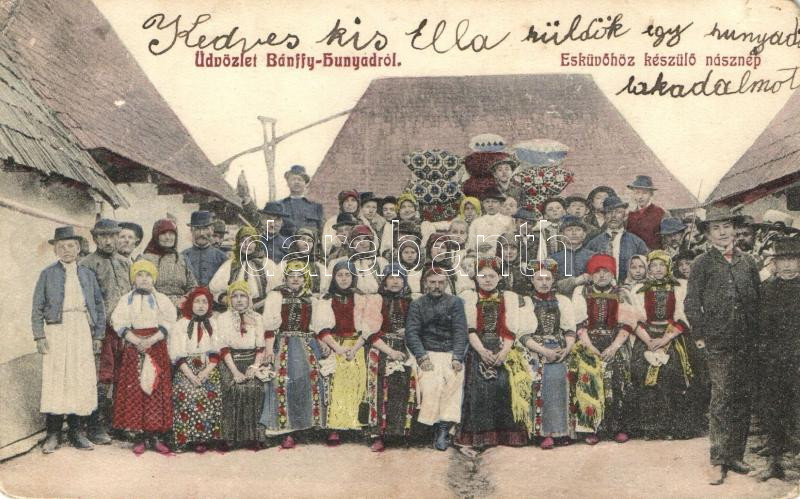 Kedves kis Ella küldök egy hunyadi
lakadalmot
Üdvözlet Bánffy-Hunyadról.
Esküvőhöz készülő násznép
darabanth